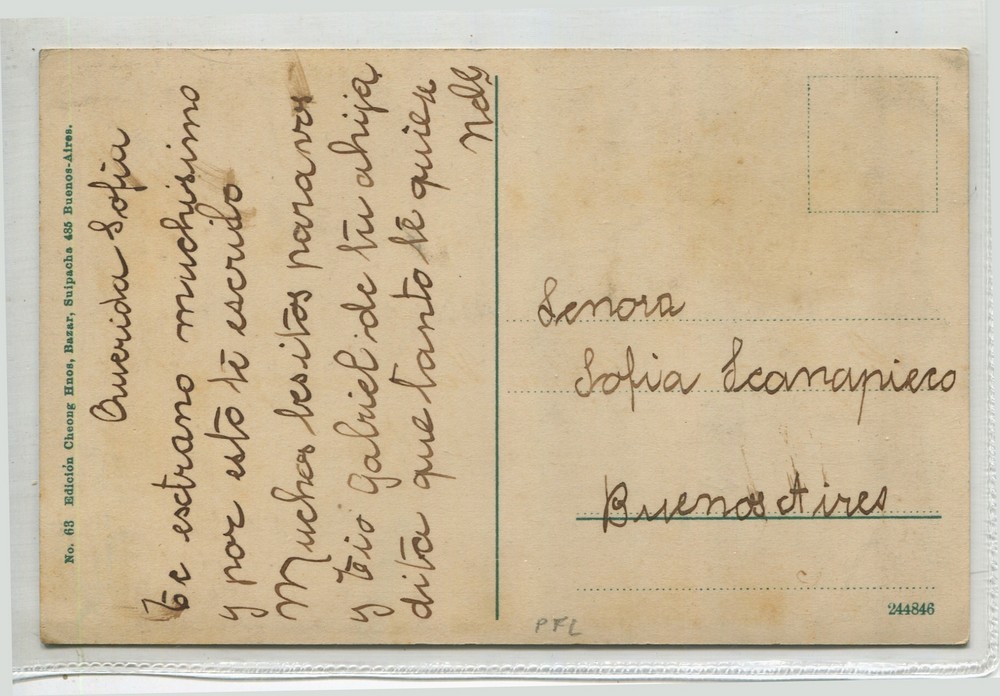 No. 63 Edición Cheong Hnos, Bazar, Suipacha 485 Buenos-Aires.
Querida Sofia
Te estrano muchisimo
y por esto té escribo
Muchos besitos para vos
y tio Gabriel de tu ahija
dita que tanto té quier
Senora
Sofia Scanapieco
Buenos Aires
244846
PFL